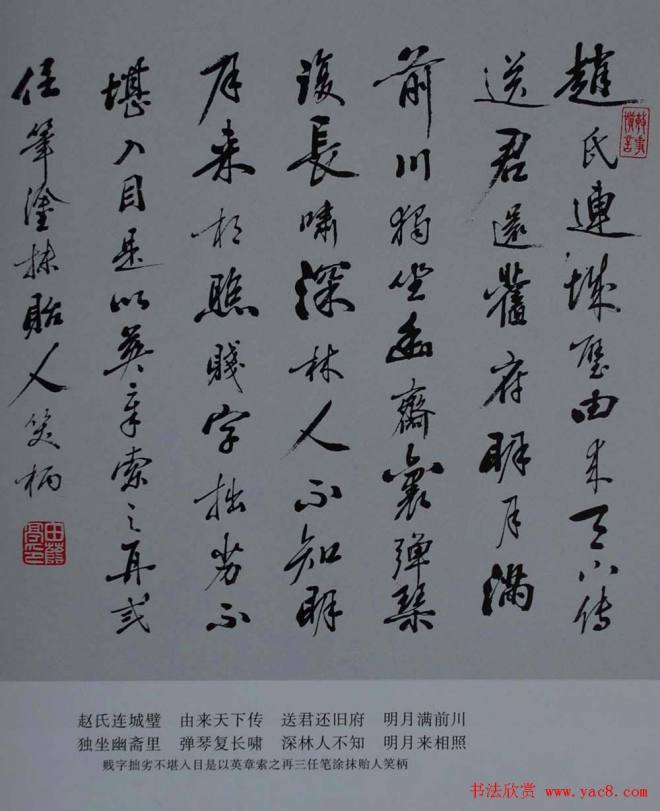 趙氏連城璧由来天下传
敏事慎言
送君還舊府明月滿
前川獨坐幽齋裏彈琴
復長嘯深林人不知明
月来相照賤字拙劣不
堪入目是以英章索之再弎
任筆塗抹貽人笑柄
赵氏连城璧 由来天下传 送君还旧府 明月满前川
独坐幽斋里 弹琴复长啸 深林人不知 明月来相照
贱字拙劣不堪入目是以英章索之再三任笔涂抹贻人笑柄
书法欣赏 www.yac8.com